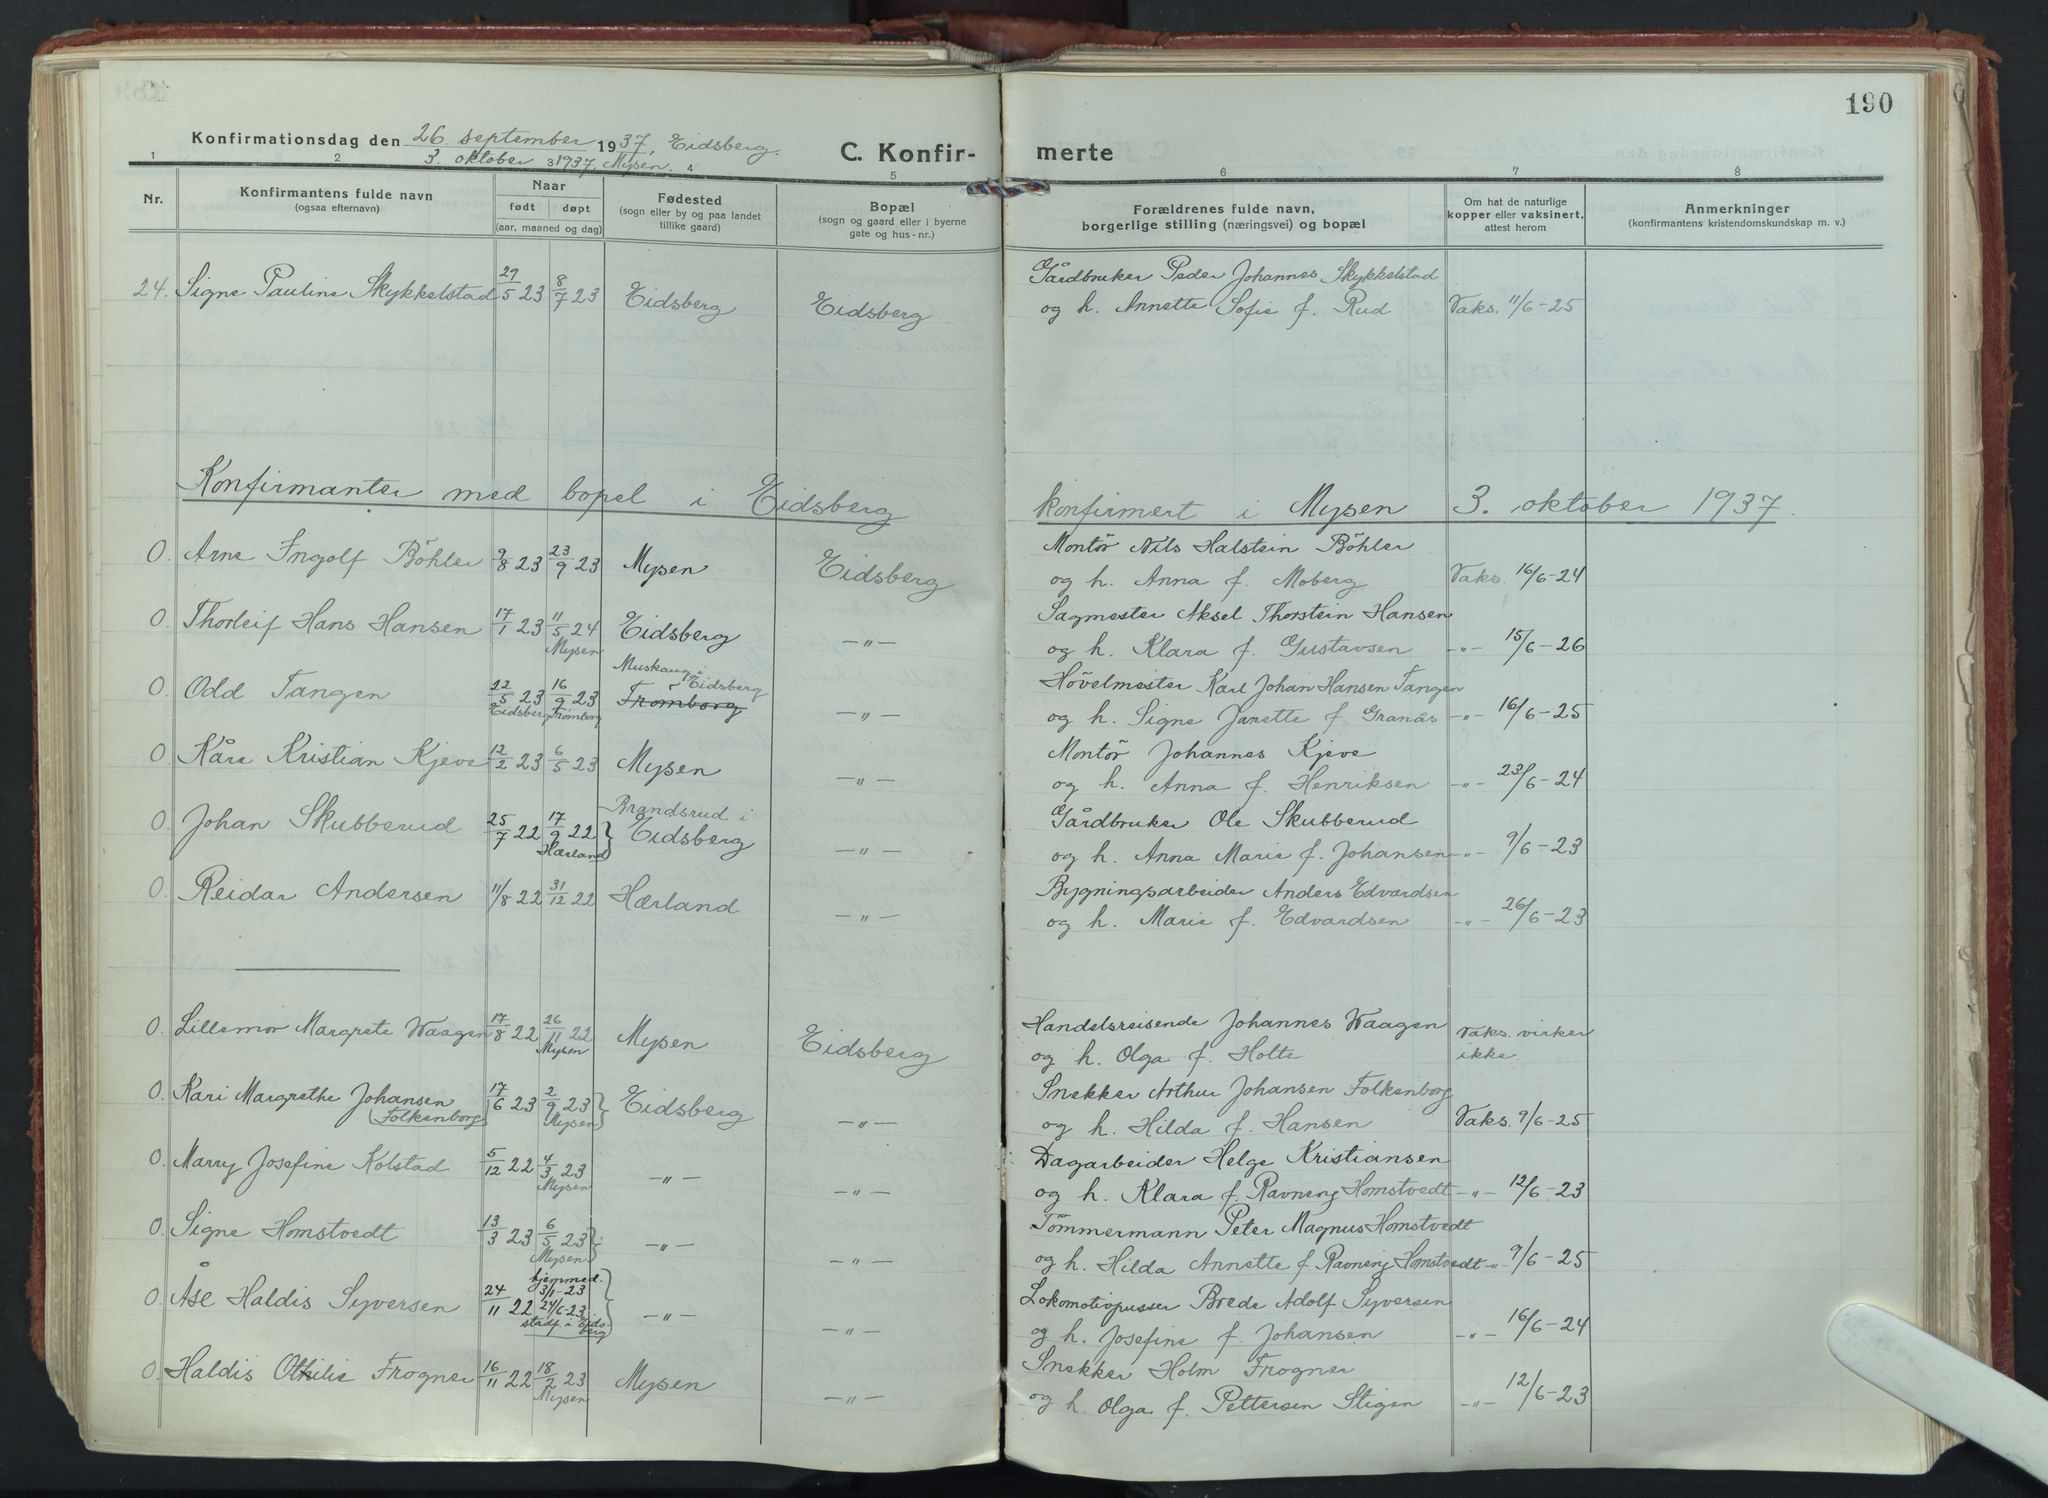 190
Konfirmationsdag den 26. september 1937, Eidsberg.
3. oktober 1937, Mysen.
C. Konfir- merte
1 2 3 4 5 6 7 8
Nr.
Konfirmantens fulde navn
(ogsaa efternavn)
Naar
født døpt
(aar, maaned og dag)
Fødested
(sogn eller by og paa landet
tillike gaard)
Bopæl
(sogn og gaard eller i byerne
gate og hus-nr.)
Forældrenes fulde navn,
borgerlige stilling (næringsvei) og bopæl
Om hat de naturlige
kopper eller vaksinert,
attest herom
Anmerkninger
(konfirmantens kristendomskundskap m. v.)
Gårdbruker Peder Johannes Skykkelstad
24. Signe Pauline Skykkelstad 27/5 23 8/7 23 Eidsberg Eidsberg og h. Annette Sofie f. Rud Vaks. 11/6-25
Konfirmanter med bopel i Eidsberg konfirmert i Mysen 3. oktober 1937.
Montör Nils Halstein Böhler
0. Arne Ingolf Böhler 9/8 23 23/9 23 Mysen Eidsberg og h. Anna f. Moberg Vaks. 16/6-24
Sagmester Aksel Thorstein Hansen
0. Thorleif Hans Hansen 17/1 23 11/5 24 Eidsberg -"- og h. Klara f. Gustavsen -"- 15/6-26
Mysen
Muskaug i
Eidsberg
Hövelmester Karl Johan Hansen Tangen
0. Odd Tangen 22/5 23 16/9 23 Trömborg -"- og h. Signe Janette f. Granås -"- 16/6-25
Eidsberg Trømborg
Montör Johannes Kjeve
0. Kåre Kristian Kjeve 12/2 23 6/5 23 Mysen -"- og h. Anna f. Henriksen -"- 23/6-24
Brandsrud i
Gårdbruker Ole Skubberud
0. Johan Skubberud 25/7 22 17/9 22 Eidsberg -"- og h. Anna Marie f. Johansen -"- 9/6-23
Hærland
Bygningsarbeider Anders Edvardsen
0. Reidar Andersen 11/8 22 31/12 22 Hærland -"- og h. Marie f. Edvardsen -"- 26/6-23
Handelsreisende Johannes Waagen Vaks. virker
0. Lillemor Margrete Waagen 17/8 22 26/11 22 Mysen Eidsberg og h. Olga f. Holte ikke
Mysen
Snekker Arthur Johansen Folkenborg
0. Kari Margrethe Johansen 17/6 23 2/9 23 Eidsberg -"- og h. Hilda f. Hansen Vaks. 9/6-25
(Folkenborg) Mysen
Dagarbeider Helge Kristiansen
0. Marry Josefine Kolstad 5/12 22 4/3 23 -"- -"- og h. Klara f. Ravneng Homstvedt -"- 12/6-23
Mysen
Tömmermann Peter Magnus Homstvedt
0. Signe Homstvedt 13/3 23 6/5 23 -"- -"- og h. Hilda Annette f. Ravneng Homstvedt -"- 9/6-25
Mysen
hjemmed.
3/1-23
Lokomotivpusser Brede Adolf Syversen
0. Åse Haldis Syversen 24/11 22 24/6-23 -"- -"- og h. Josefine f. Johansen -"- 16/6-24
stadf. i Eids-
berg
Snekker Holm Frogner
0. Haldis Othilie Frogner 16/11 22 18/2 23 Mysen -"- og h. Olga f. Pettersen Stigen -"- 12/6-23
Mysen